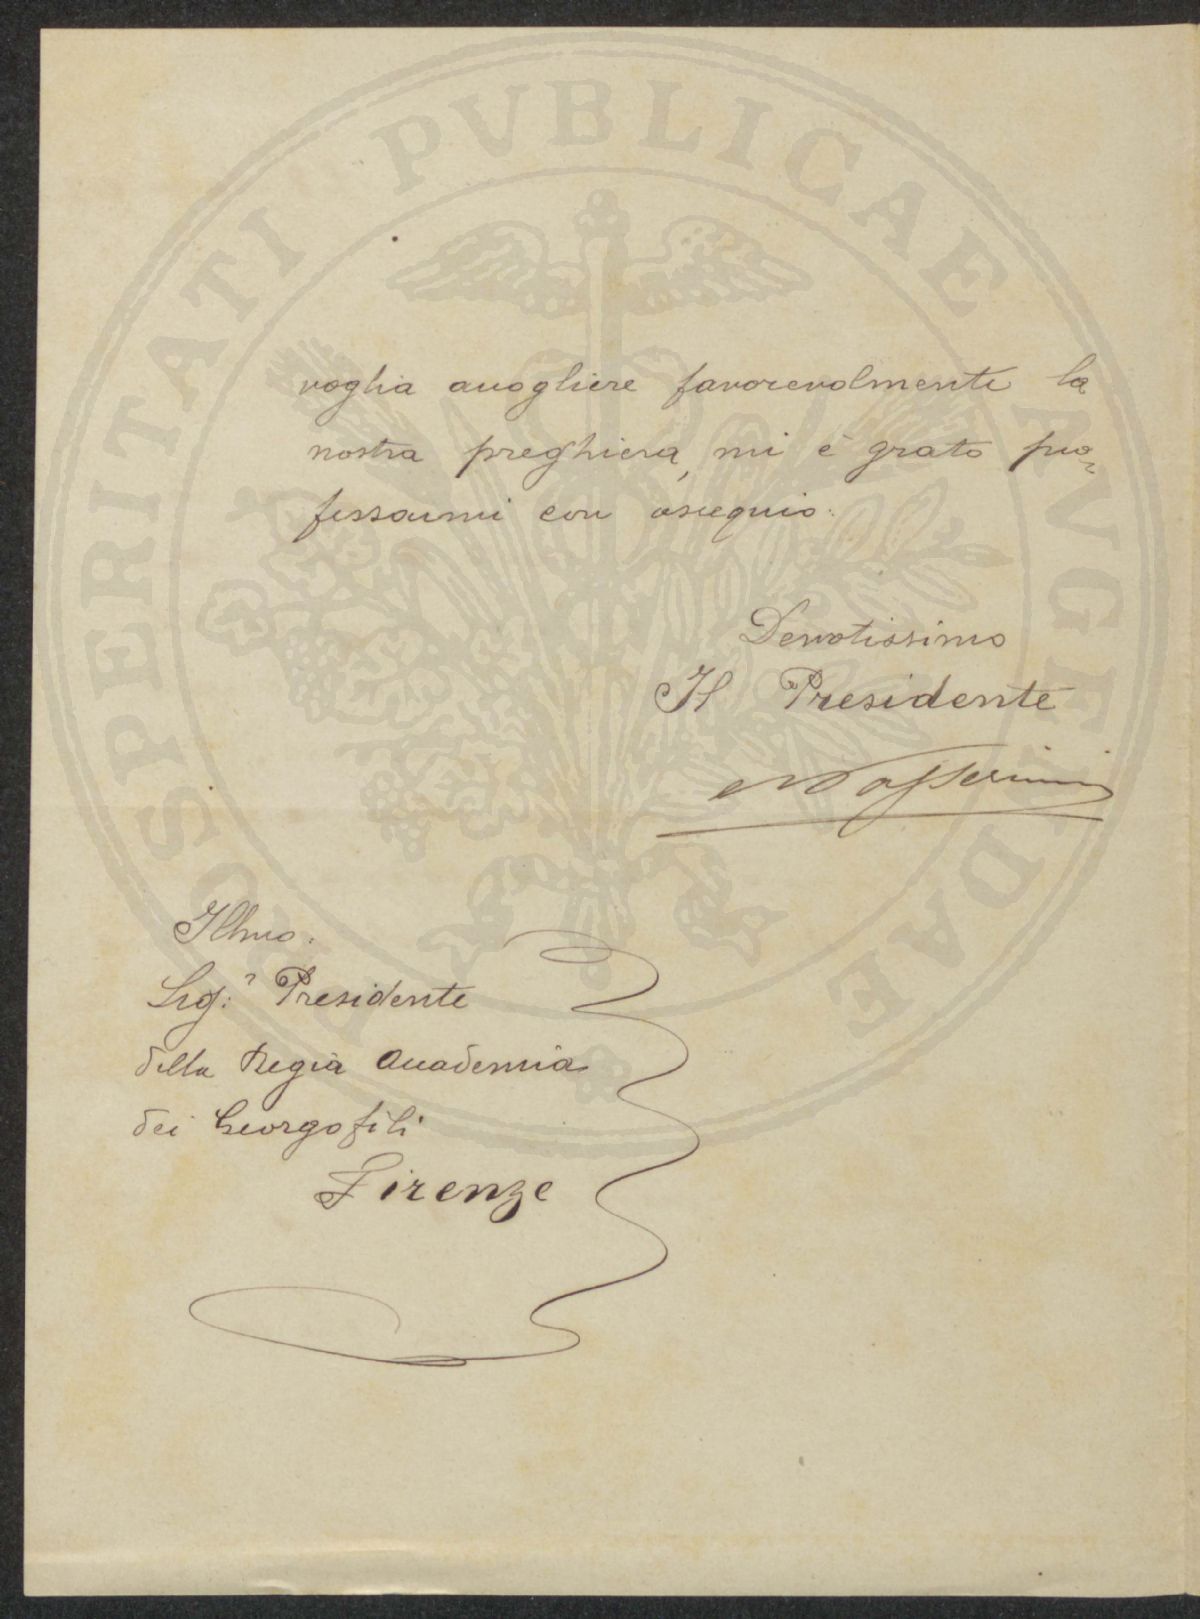 PROSPERITATI PUBLICAE AUGENDAE
voglia accogliere favorevolmente la
nostra preghiera, mi è grato pro=
fessarmi con ossequio.
Devotissimo
Il Presidente
Passerini
Illmo.
Sig.r Presidente
della Regia Accademia
dei Georgofili
Firenze